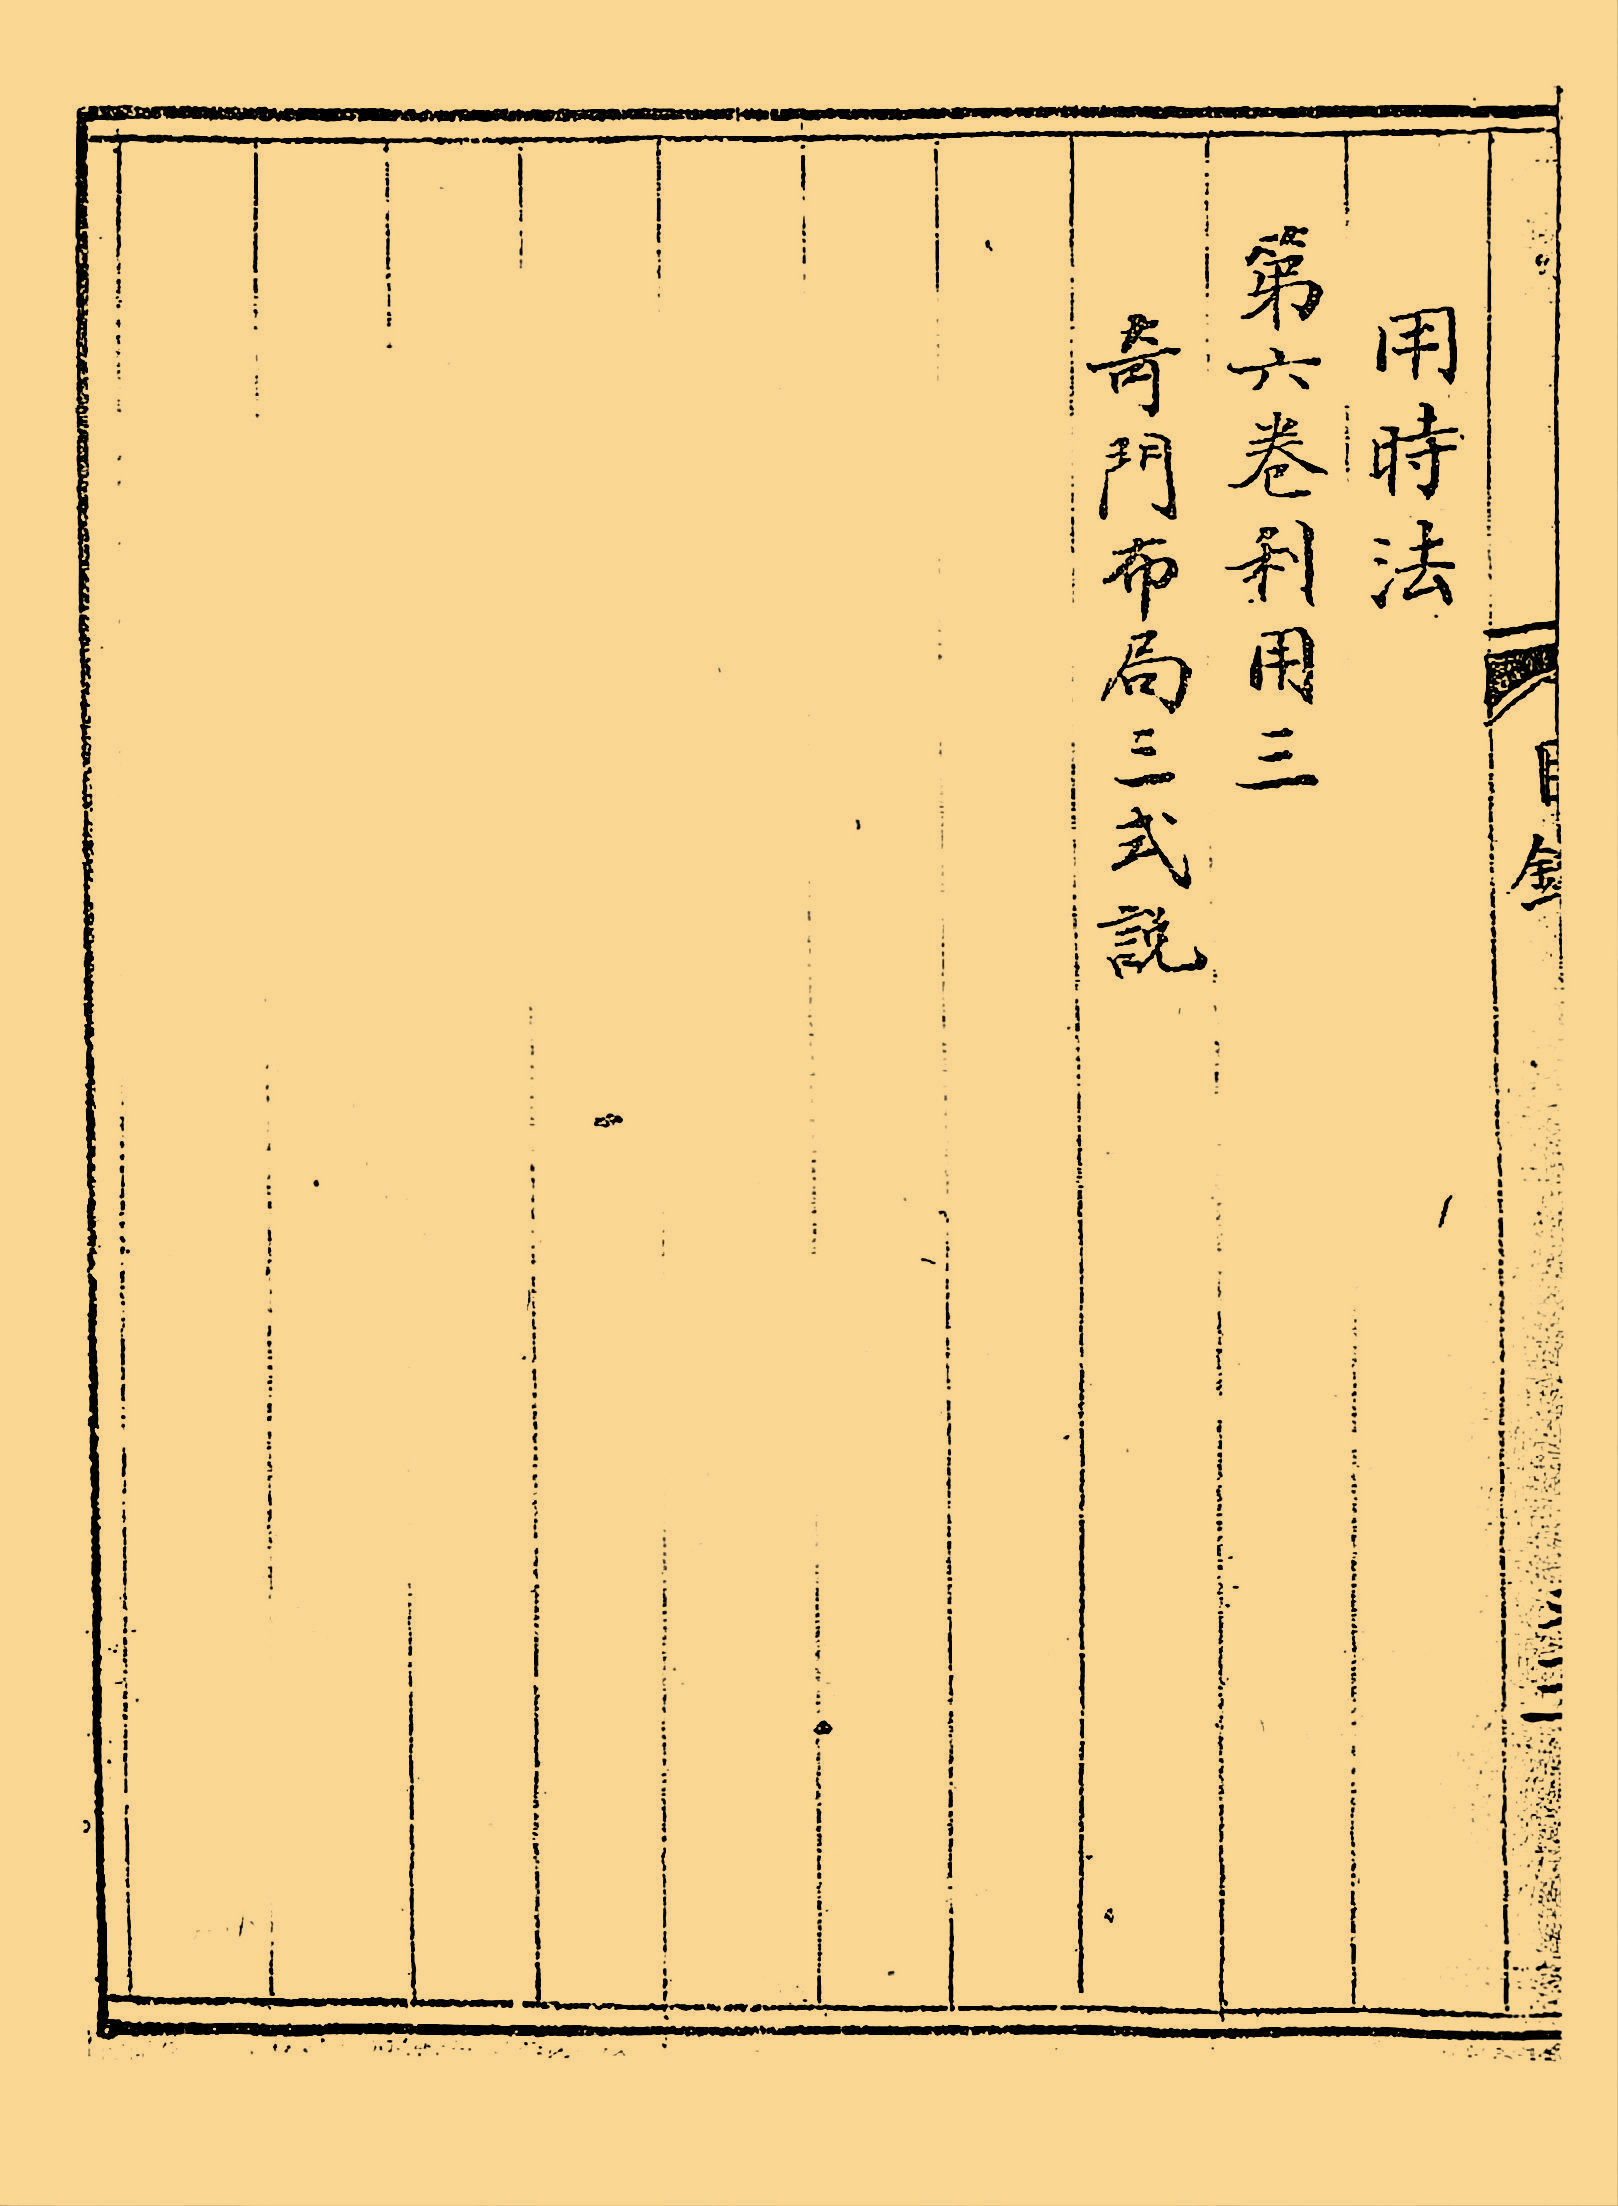 用時法
第六卷利用三
奇門布局三式說
目錄